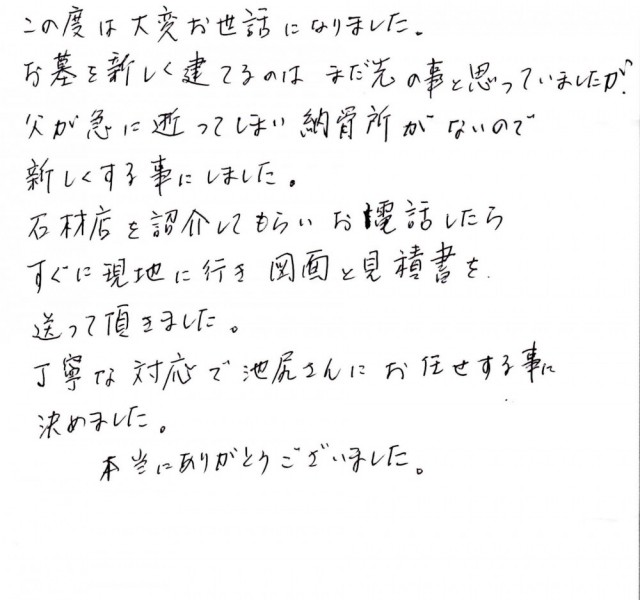 この度は大変お世話になりました。
お墓を新しく建てるのは まだ先の事と思っていましたが、
父が急に逝ってしまい納骨所がないので
新しくする事にしました。
石材店を紹介してもらい お電話したら
すぐに現地に行き 図面と見積書を
送って頂きました。
丁寧な対応で池尻さんに お任せする事に
決めました。
本当にありがとうございました。